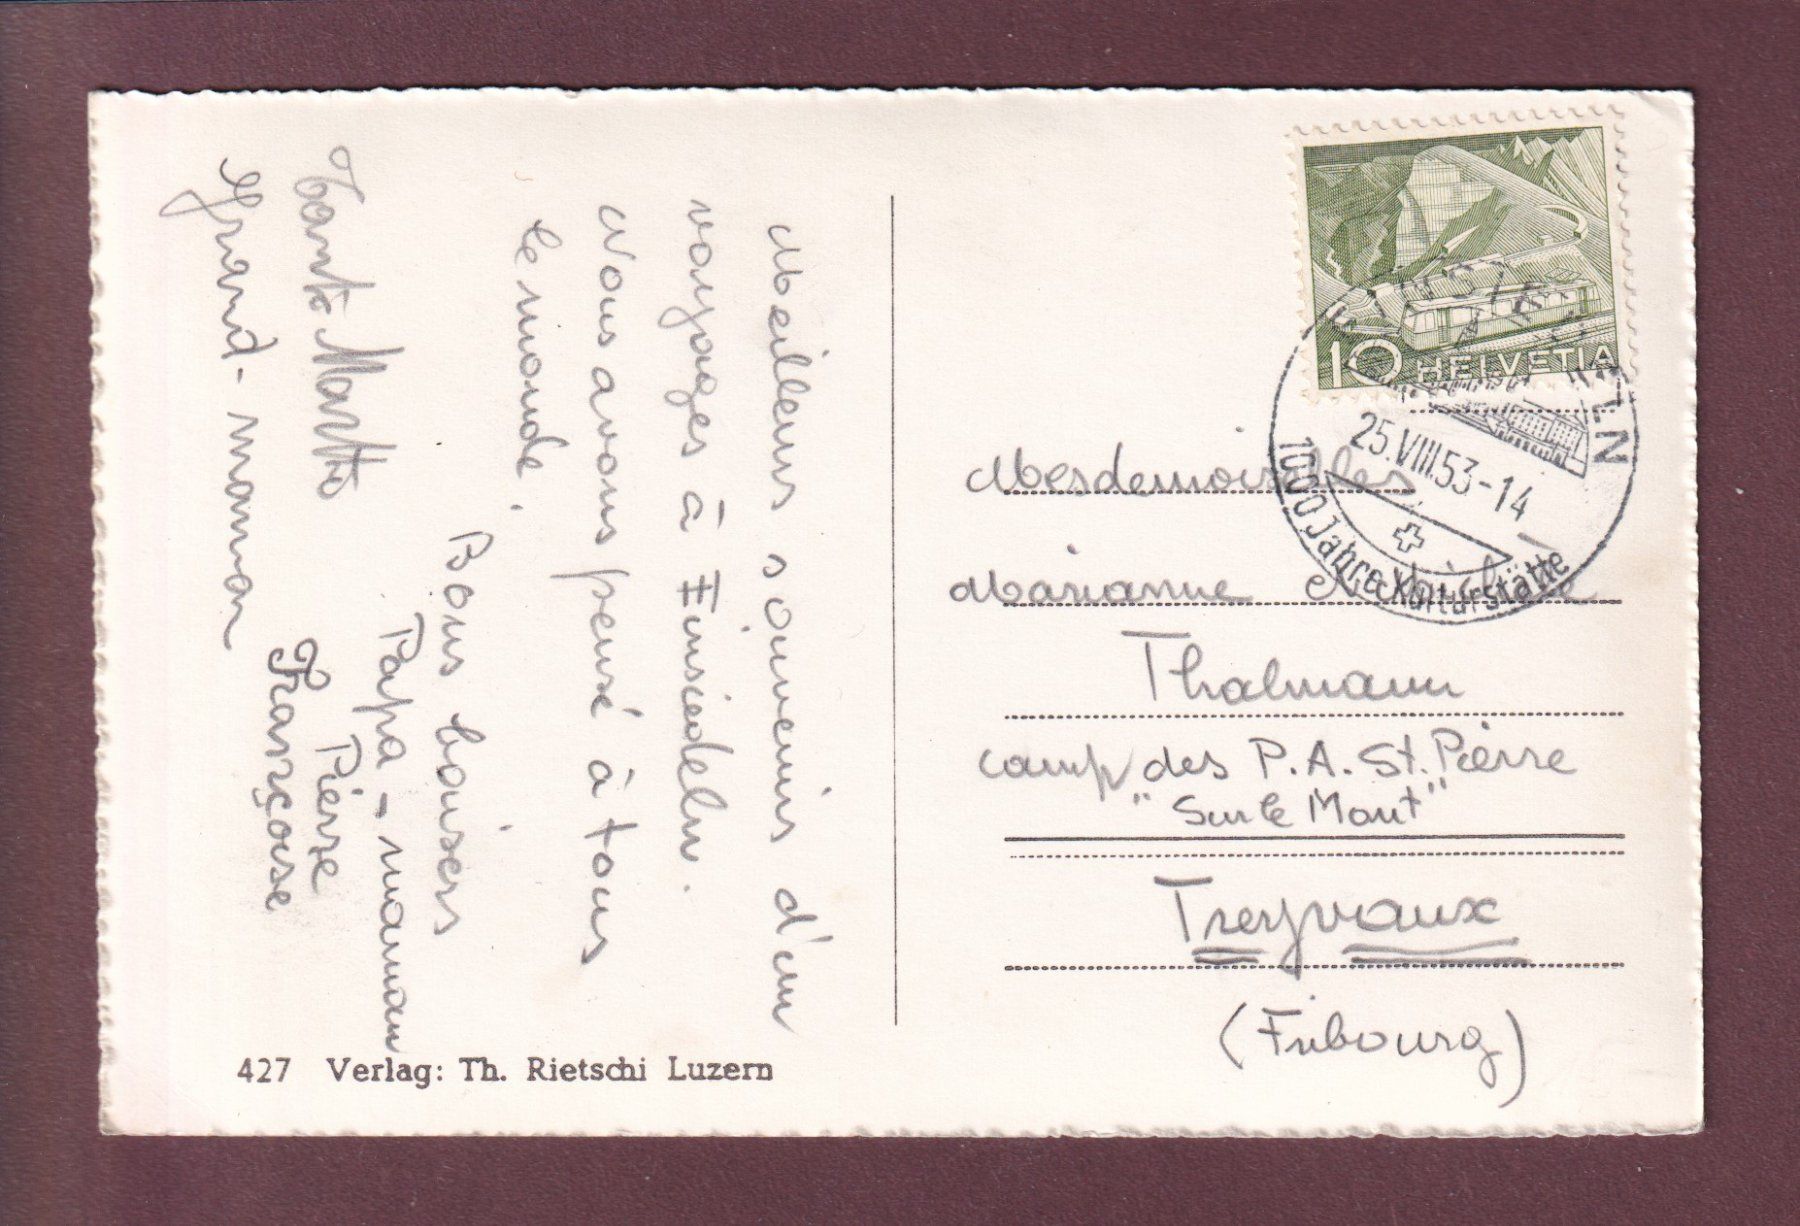 Meilleurs souvenirs d'un
voyages à Einsiedeln.
Nous avons pensé à tous
le monde.
Bons baisers
Papa - maman
Pierre
Tante Martha
Françoise
Grand-maman
427 Verlag: Th. Rietschi Luzern
10 HELVETIA
EINSIEDELN
25.VIII.53-14
1000 Jahre Kulturstätte
Mesdemoiselles
Marianne et Michèle
Thalmann
camp des P.A. St. Pièrre
"Sur le Mont"
Treyvaux
(Fribourg)